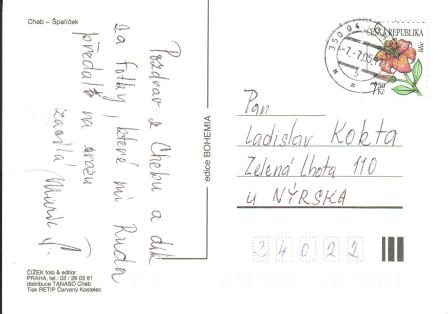 Cheb – Špalíček
Pozdrav z Chebu a dík
za fotky, které mi Ruda
předal na srazu
zasílá
ČÍŽEK foto & editor
PRAHA, tel.: 02 / 29 03 61
distribuce TANASO Cheb
Tisk RETIP Červený Kostelec
edice BOHEMIA
350 04
-7.-7.05
ČESKÁ REPUBLIKA
7,50
Kč
Pan
Ladislav Kokta
Zelená Lhota 110
u NÝRSKA
34022